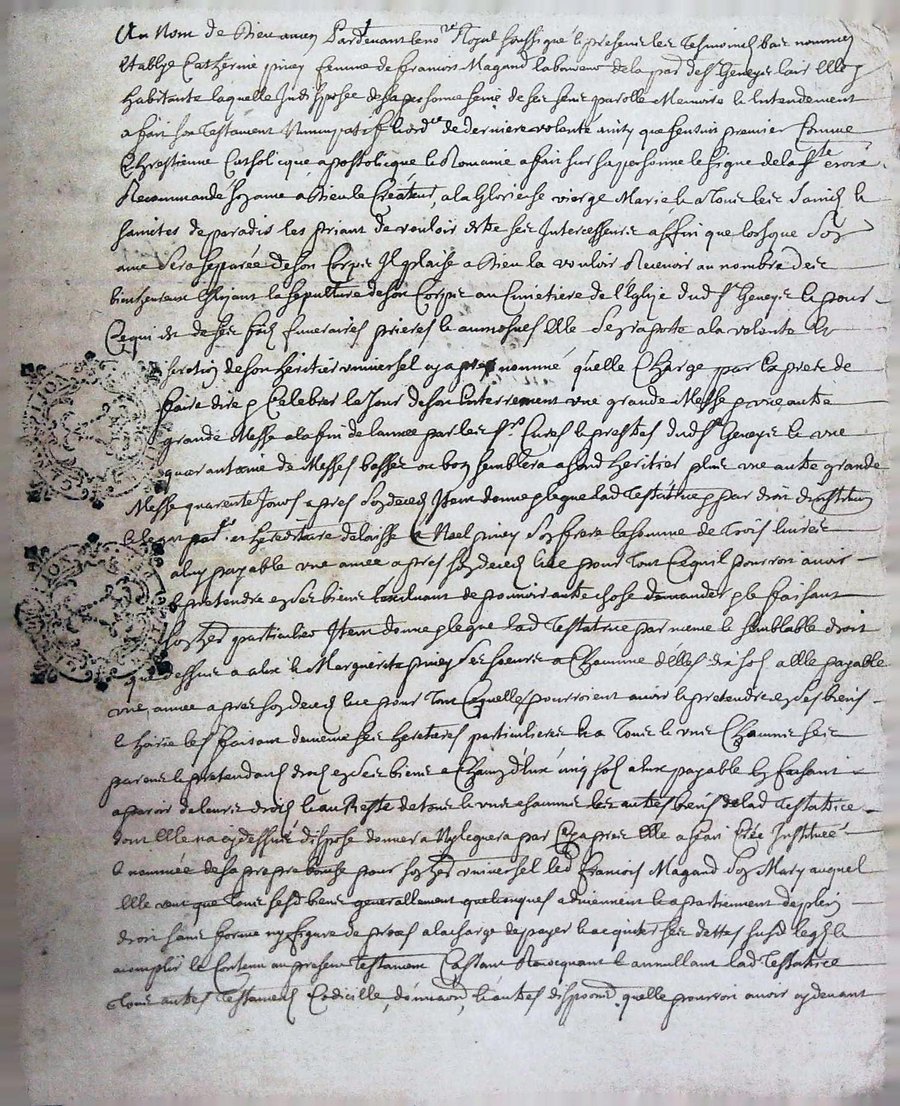 Au Nom de Dieu amen Pardevant le no.re Royal soussigné le presens les Tesmoincs bas nommes
establye Catherine piney femme de francois Magand laboureur de la par de St Geneys lair Elle
habitante laquelle Indisposée de sa personne saine de ses sens parolle Memoire le Entendement
a fait son Testament Nuncupatif et ord.ce de derniere volonté ainsy que sensuit premier Comme
Chrestienne Catholicque apostolicque le Romaine a fait sur sa personne le signe de la Ste croix
Recommandé son ame a Dieu le Createur, a la Glorieuse vierge Marie le a Tous les Saincts le
saintes de paradis les priant de vouloir estre ses Intercesseurs affin que lorsque Son
ame Sera Separée de son Corps Il plaise a Dieu la vouloir Recevoir au nombre des
bienheureux Elizant la Sepulture de son Corps au Cimetiere de l'Eglise dud St Geneys le pour
Ce qui est de ses frais funeraires prieres le aumosnes Elle Se raporte a la volonté le
discretion de son heritier universel cy apres nommé quelle Charge par Expres de
faire dire et Celebrer le Jour de son Enterrement une grande Messe et une autre
grande Messe a la fin de l'année par les Srs Cures le prestres dud St Geneys le une
quarantaine de Messes basses ou bon semblera a sond heritier plus une autre grande
Messe quarente Jours apres Son deces Item donne et legue lad Testatrice par droit d'institution
le legat par.er hereditaire delaisse a Noel piney Son frere la somme de Trois livres
a luy payable une année apres son deces le ce pour Tout Ce quil pourroit avoir
le pretendre en ses biens lexcluant de pouvoir autre chose demander le faisant
son her particulier Item donne et legue lad Testatrice par meme le Semblable droit
que dessus a alix le Marguerite piney Ses soeurs a Chacune d'elles dix sols a Elle payable
une année apres son deces le ce pour Tout Ce quelles pourroient avoir le pretendre en ses biens
le hoirie les faisant de meme ses heretieres particulieres le a Tous le uns Chacuns ses
parens le pretendants droit en ses biens a Chacun d'eux cinq sols a eux payable En faisant
aparoir de leurs droits le au Reste de tous le uns chacuns les autres biens de lad Testatrice
dont Elle na cy dessus disposé donnera Ny leguera par Cy apres Elle a fait Créé Institué
le nommée de sa propre bouche pour son her universel led francois Magand Son Mary auquel
Elle veut que Tous sesd biens generallement quelconques adviennent le apartiennent de plein
droit sans forme ny figure de proces a la charge de payer le acquiter ses dettes susd legats le
acomplir le Contenu au present Testament Cassant Revocquant le annullant lad Testatrice
Tous autres Testaments Codicille, donnaons, le autres disposons quelle pourroit avoir cy devant